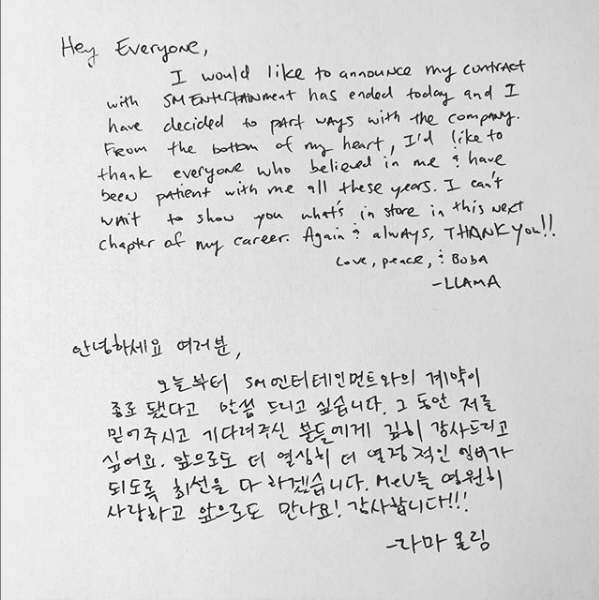 Hey Everyone,
I would like to announce my contract
with SM Entertainment has ended today and I
have decided to part ways with the company.
From the bottom of my heart, I'd like to
thank everyone who believed in me & have
been patient with me all these years. I can't
wait to show you what's in store in this next
chapter of my career. Again & always, THANK You!!
Love, peace, & BOBA
-LLAMA
안녕하세요 여러분,
오늘부터 SM엔터테인먼트와의 계약이
종료 됐다고 말씀 드리고 싶습니다. 그 동안 저를
믿어주시고 기다려주신 분들에게 깊히 감사드리고
싶어요. 앞으로도 더 열심히 더 열정적인 엠버가
되도록 최선을 다 하겠습니다. MeU들 영원히
사랑하고 앞으로도 만나요! 감사합니다!!!
-라마 올림